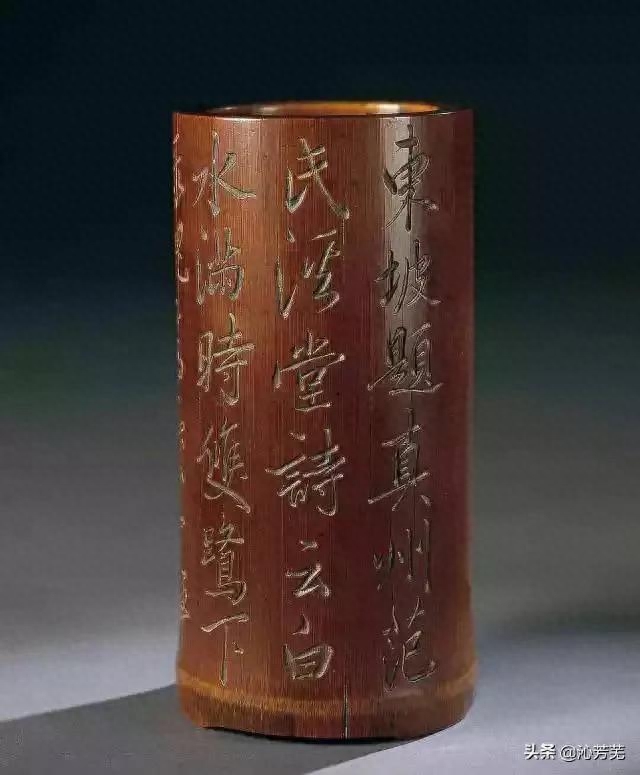 東坡題真州范
氏溪堂詩云白
水滿時雙鷺下
头条 @沁芳芜